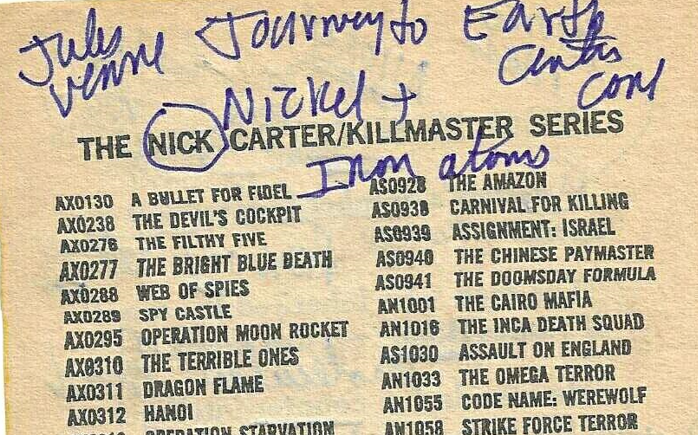 Jules Journey to Earth
Venne Centers
Core
Nickel +
THE NICK CARTER/KILLMASTER SERIES
Iron atoms
AX0130 A BULLET FOR FIDEL
AX0238 THE DEVIL'S COCKPIT
AX0276 THE FILTHY FIVE
AX0277 THE BRIGHT BLUE DEATH
AX0288 WEB OF SPIES
AX0289 SPY CASTLE
AX0295 OPERATION MOON ROCKET
AX0310 THE TERRIBLE ONES
AX0311 DRAGON FLAME
AX0312 HANOI
OPERATION STARVATION
AS0928 THE AMAZON
AS0938 CARNIVAL FOR KILLING
AS0939 ASSIGNMENT: ISRAEL
AS0940 THE CHINESE PAYMASTER
AS0941 THE DOOMSDAY FORMULA
AN1001 THE CAIRO MAFIA
AN1016 THE INCA DEATH SQUAD
AS1030 ASSAULT ON ENGLAND
AN1033 THE OMEGA TERROR
AN1055 CODE NAME: WEREWOLF
AN1058 STRIKE FORCE TERROR